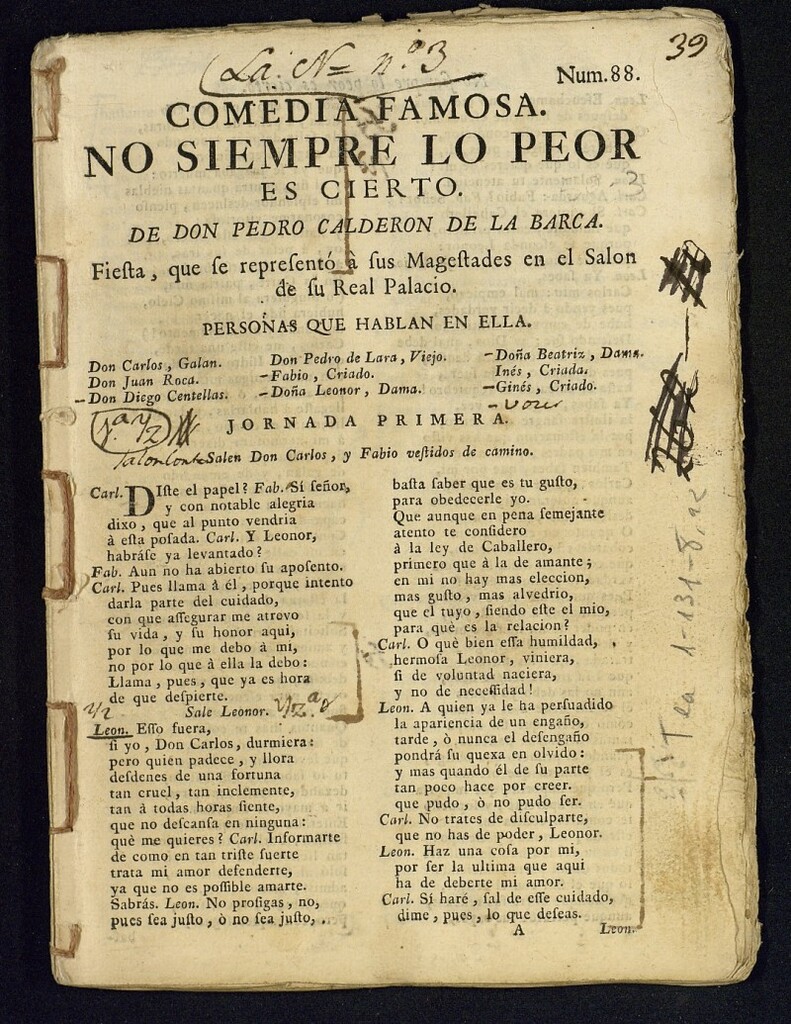 La. N= nº 3
39
Num. 88.
COMEDIA FAMOSA.
NO SIEMPRE LO PEOR
ES CIERTO.
3
DE DON PEDRO CALDERON DE LA BARCA.
Fieſta, que ſe repreſentó à ſus Mageſtades en el Salon
de ſu Real Palacio.
PERSONAS QUE HABLAN EN ELLA.
Don Carlos, Galan.
Don Juan Roca.
-Don Diego Centellas.
Don Pedro de Lara, Viejo.
-Fabio, Criado.
-Doña Leonor, Dama.
-Doña Beatriz, Dama.
Inés, Criada.
-Ginés, Criado.
JORNADA PRIMERA.
Salen Don Carlos, y Fabio veſtidos de camino.
Carl. DIſte el papel? Fab. Sí ſeñor,
y con notable alegria
dixo, que al punto vendria
à eſta poſada. Carl. Y Leonor,
habráſe ya levantado?
Fab. Aun no ha abierto ſu apoſento.
Carl. Pues llama à él, porque intento
darla parte del cuidado,
con que aſſegurar me atrevo
ſu vida, y ſu honor aqui,
por lo que me debo à mi,
no por lo que à ella la debo:
Llama, pues, que ya es hora
de que deſpierte.
Sale Leonor.
Leon. Eſſo fuera,
ſi yo, Don Carlos, durmiera:
pero quien padece, y llora
deſdenes de una fortuna
tan cruel, tan inclemente,
tan à todas horas ſiente,
que no deſcanſa en ninguna:
què me quieres? Carl. Informarte
de como en tan triſte ſuerte
trata mi amor defenderte,
ya que no es poſſible amarte.
Sabrás. Leon. No proſigas, no,
pues ſea juſto, ò no ſea juſto,
baſta ſaber que es tu guſto,
para obedecerle yo.
Que aunque en pena ſemejante
atento te conſidero
à la ley de Caballero,
primero que à la de amante;
en mi no hay mas eleccion,
mas guſto, mas alvedrio,
que el tuyo, ſiendo eſte el mio,
para què es la relacion?
Carl. O què bien eſſa humildad,
hermoſa Leonor, viniera,
ſi de voluntad naciera,
y no de neceſſidad!
Leon. A quien ya le ha perſuadido
la apariencia de un engaño,
tarde, ò nunca el deſengaño
pondrá ſu quexa en olvido:
y mas quando él de ſu parte
tan poco hace por creer.
que pudo, ò no pudo ſer.
Carl. No trates de diſculparte,
que no has de poder, Leonor.
Leon. Haz una coſa por mi,
por ſer la ultima que aqui
ha de deberte mi amor.
Carl. Sí haré, ſal de eſſe cuidado,
dime, pues, lo que deſeas.
A
Leon.
Tea 1-131-8,